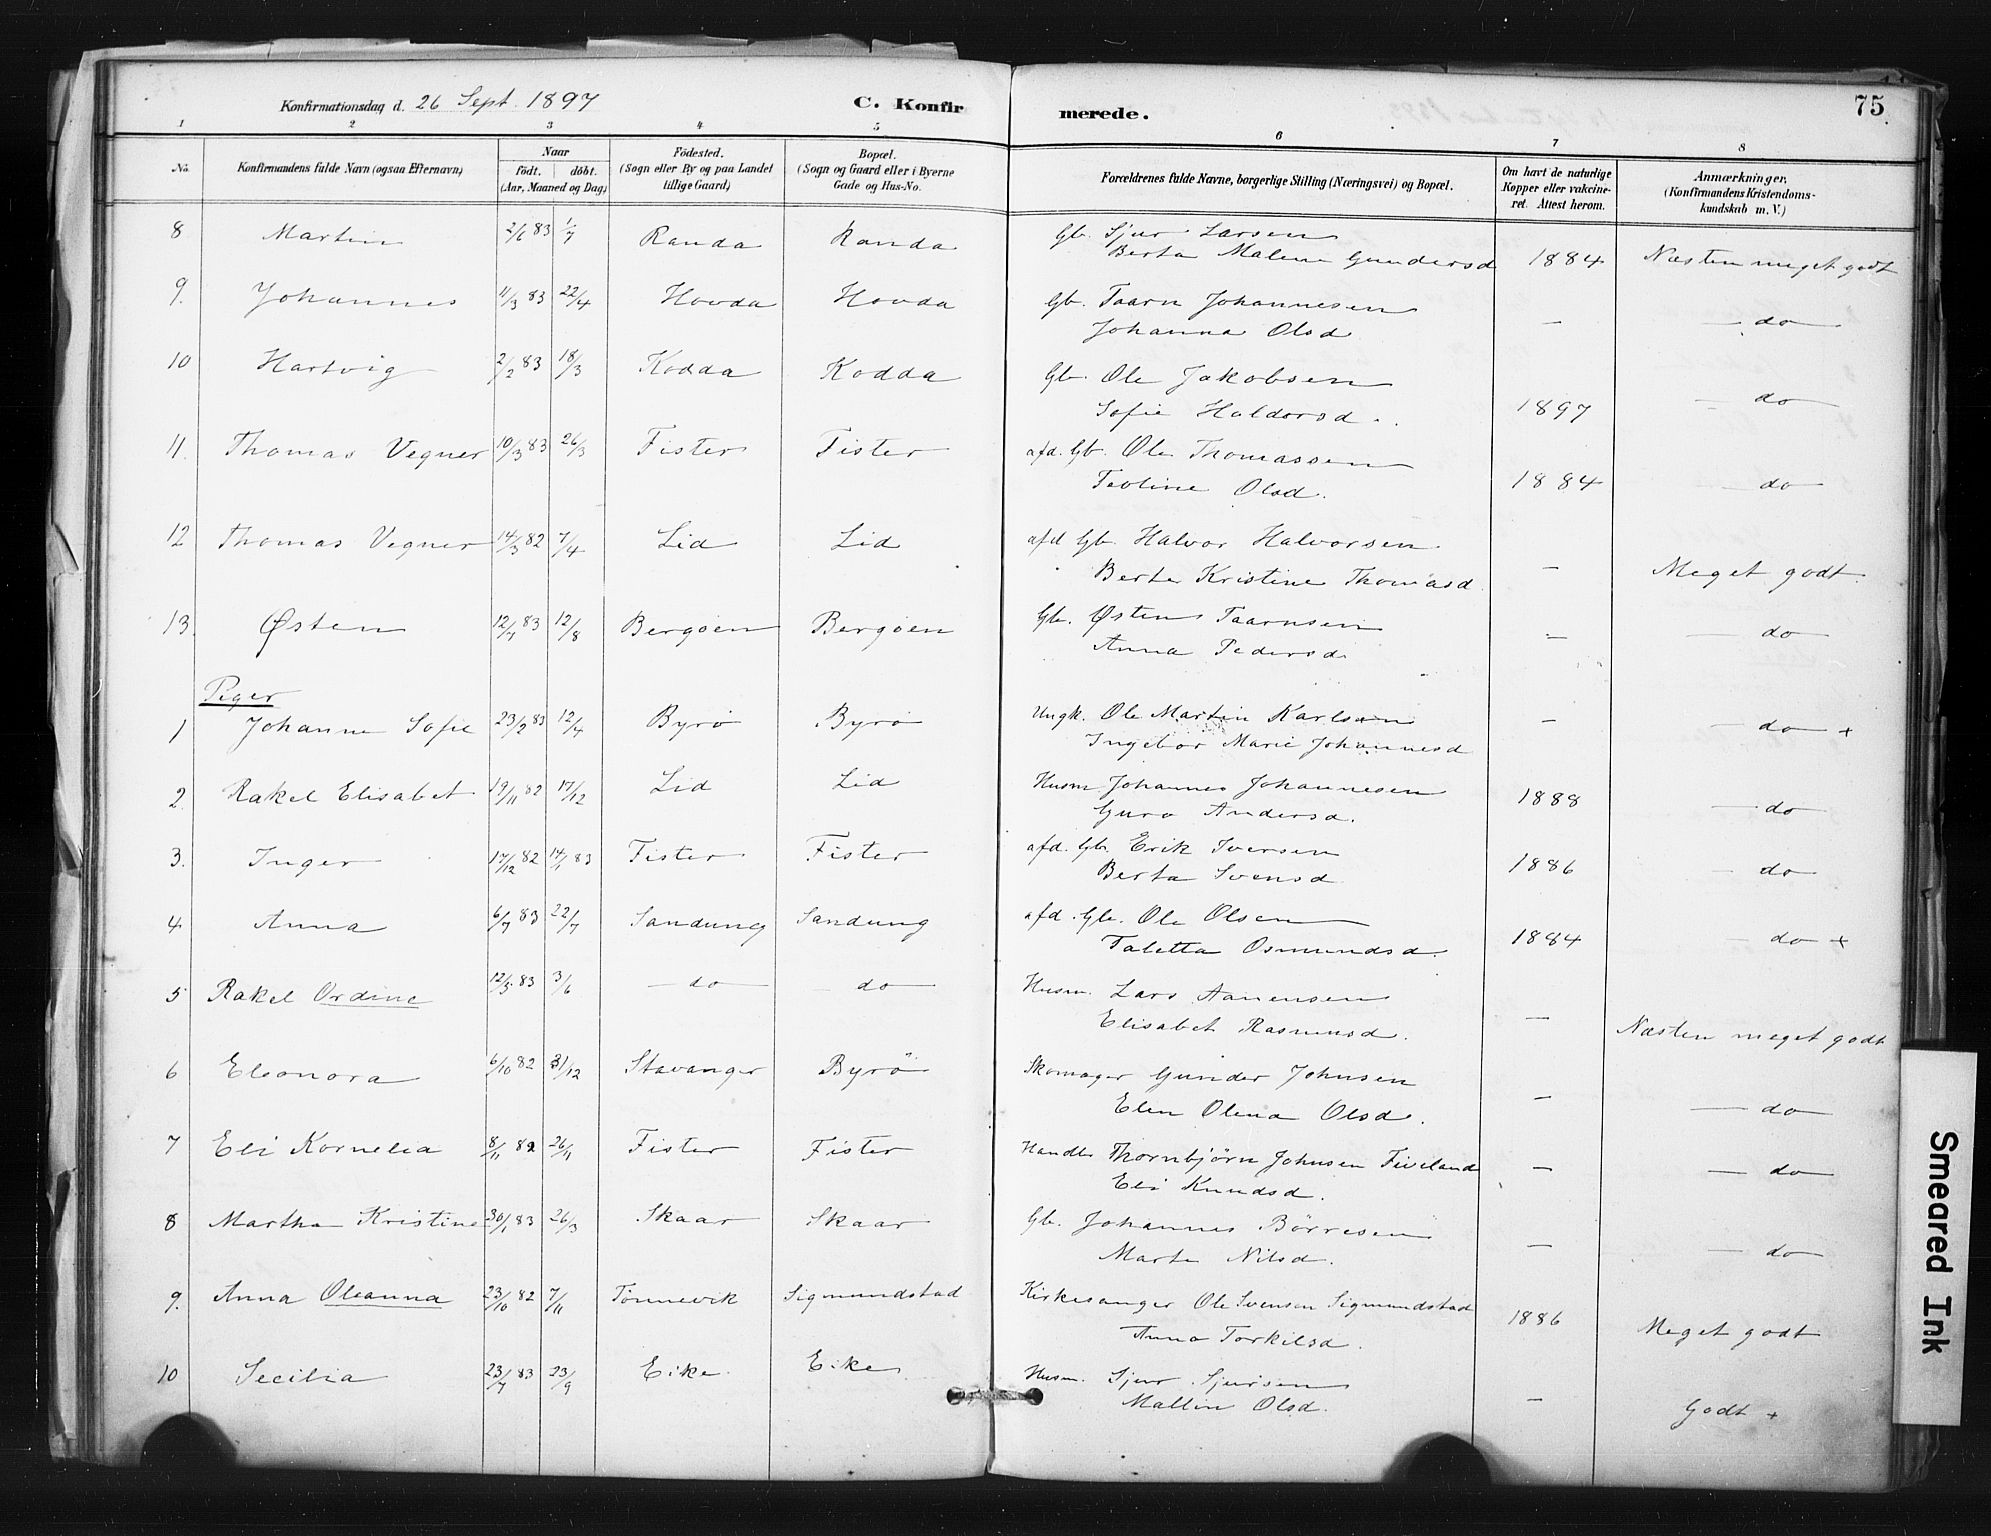 Konfirmationsdag d. 26 Sept. 1897 C. Konfirmerede. 75
1 2 3 4 5 6 7 8
No. Konfirmandens fulde Navn (ogsaa Efternavn) Naar født. døbt. (Aar, Maaned og Dag) Fødested. (Sogn eller By og paa Landet tillige Gaard) Bopæl. (Sogn og Gaard eller i Byerne Gade og Hus-No. Forældrenes fulde Navne, borgerlige Stilling (Næringsvei) og Bopæl. Om havt de naturlige Kopper eller vakcineret. Attest herom. Anmærkninger, (Konfirmandens Kristendomskundskab m. V.)
8 Martin 2/6 83 1/7 Randa Randa Gb. Sjur Larsen
Berta Malene Gundersd 1884 Næsten meget godt
9. Johannes 11/3 83 22/4 Hovda Hovda Gb. Taarn Johannesen
Johanna Olsd — — do —
10 Hartvig 2/2 83 18/3 Kodda Kodda Gb. Ole Jakobsen
Sofie Haldorsd. 1897 — do
11. Thomas Vegner 10/3 83 26/3 Fister Fister afd. Gb. Ole Thomassen
Teoline Olsd. 1884 — do —
12 Thomas Vegner 14/3 82 7/4 Lid Lid afd Gb. Halvor Halvorsen
Berta Kristine Thomasd — Meget godt.
13. Østen 12/7 83 12/8 Bergøen Bergøen Gb. Østen Taarnsen
Anna Pedersd. — — do —
Piger
1 Johanne Sofie 23/2 83 12/4 Byrø Byrø Ungk. Ole Martin Karlsen
Ingebor Marie Johannesd — — do +
2. Rakel Elisabet 19/11 82 17/12 Lid Lid Husm Johannes Johannesen
Guro Andersd. 1888 — do
3. Inger 17/12 82 14/1 83 Fister Fister afd. Gb. Erik Iversen
Berta Svensd 1886 — do —
4 Anna 6/7 83 22/7 Sandung Sandung afd. Gb. Ole Olsen
Taletta Osmundsd. 1884 — do +
5 Rakel Ordine 12/5 83 3/6 — do — — do — Husm. Lars Aanensen
Elisabet Rasmusd. — Næsten meget godt
6 Eleonora 6/10 82 31/12 Stavanger Byrø Skomager Gunder Johnsen
Elen Olena Olsd. — — do —
7 Eli Kornelia 8/11 82 26/11 Fister Fister Handler Thornbjørn Johnsen Fiveland
Eli Knudsd. — — do —
8 Martha Kristine 30/1 83 26/3 Skaar Skaar Gb. Johannes Børresen
Marta Nilsd. — — do
9. Anna Oleanna 23/10 82 7/11 Tønnevik Sigmundstad Kirkesanger Ole Svensen Sigmundstad
Anna Torkilsd. 1886 Meget godt
10 Secilia 23/7 83 23/9 Eike. Eike Husm. Sjur Sjursen
Mallin Olsd. — Godt +
Smeared Ink